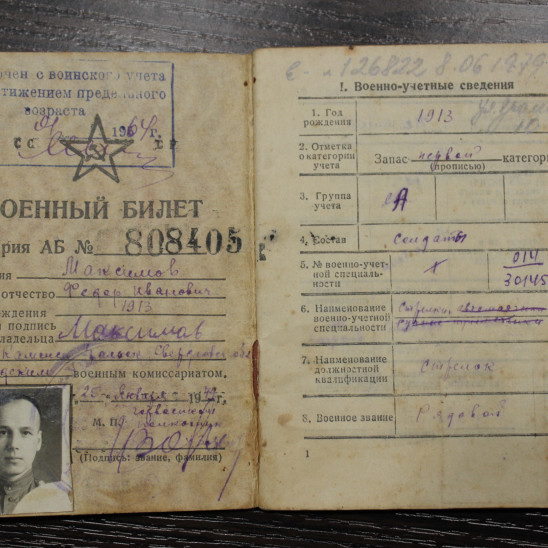 чен с воинского учета
стижением предельного
возраста
1964г.
СС СР
ОЕННЫЙ БИЛЕТ
рия АБ № 808405
ия Максимов
отчество Федор Иванович
ждения 1913
подпись
ладельца Максимов
военным комиссариатом.
"25" января 19 г.
М. П.
(Подпись: звание, фамилия)
126822 8.06.1979
I. Военно-учетные сведения
1. Год рождения 1913
2. Отметка о категории учета Запас первой категор
(прописью)
3. Группа учета А
4. Состав Солдаты
5. № военно-учет-
ной специаль-
ности 014
30145
6. Наименование
военно-учетной
специальности Стрелки
7. Наименование
должностной
квалификации Стрелок
8. Военное звание Рядовой
1